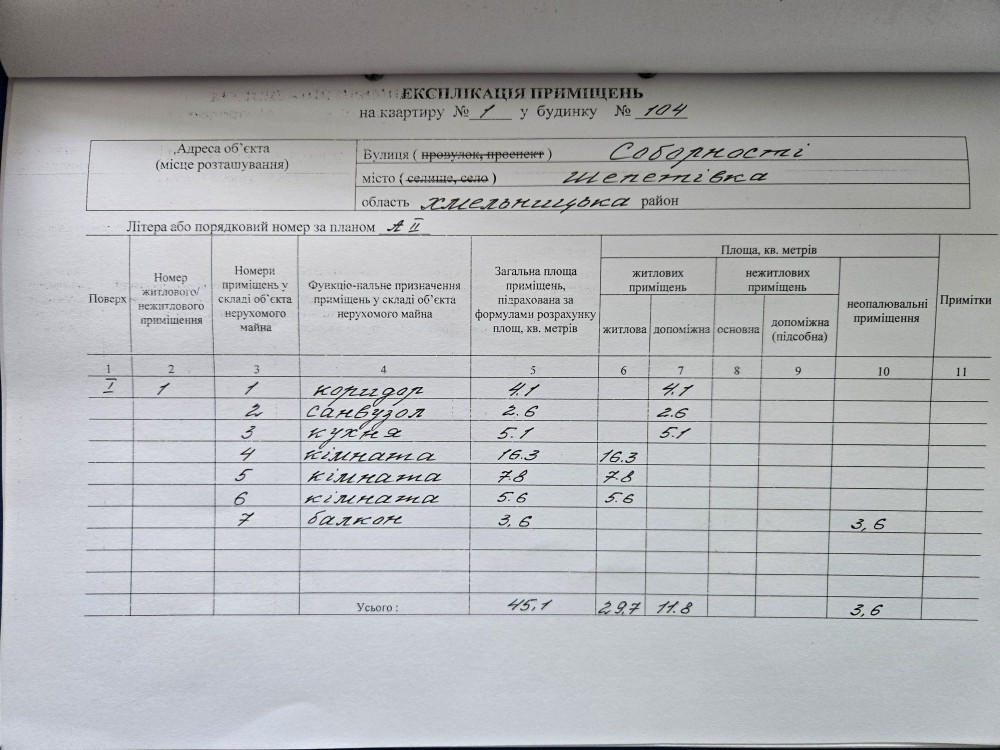 ЕКСПЛІКАЦІЯ ПРИМІЩЕНЬ
на квартиру № 1 у будинку № 104
Адреса об'єкта (місце розташування)
Вулиця ( провулок, проспект ) Соборності
місто ( селище, село ) Шепетівка
область Хмельницька район
Літера або порядковий номер за планом А II
Поверх | Номер житлового/ нежитлового приміщення | Номери приміщень у складі об'єкта нерухомого майна | Функціо-нальне призначення приміщень у складі об'єкта нерухомого майна | Загальна площа приміщень, підрахована за формулами розрахунку площ, кв. метрів | Площа, кв. метрів | Примітки
житлових приміщень | нежитлових приміщень | неопалювальні приміщення
житлова | допоміжна | основна | допоміжна (підсобна)
1 2 3 4 5 6 7 8 9 10 11
I 1 1 коридор 4.1 4.1
2 санвузол 2.6 2.6
3 кухня 5.1 5.1
4 кімната 16.3 16.3
5 кімната 7.8 7.8
6 кімната 5.6 5.6
7 балкон 3,6 3,6
Усього : 45,1 29,7 11.8 3,6